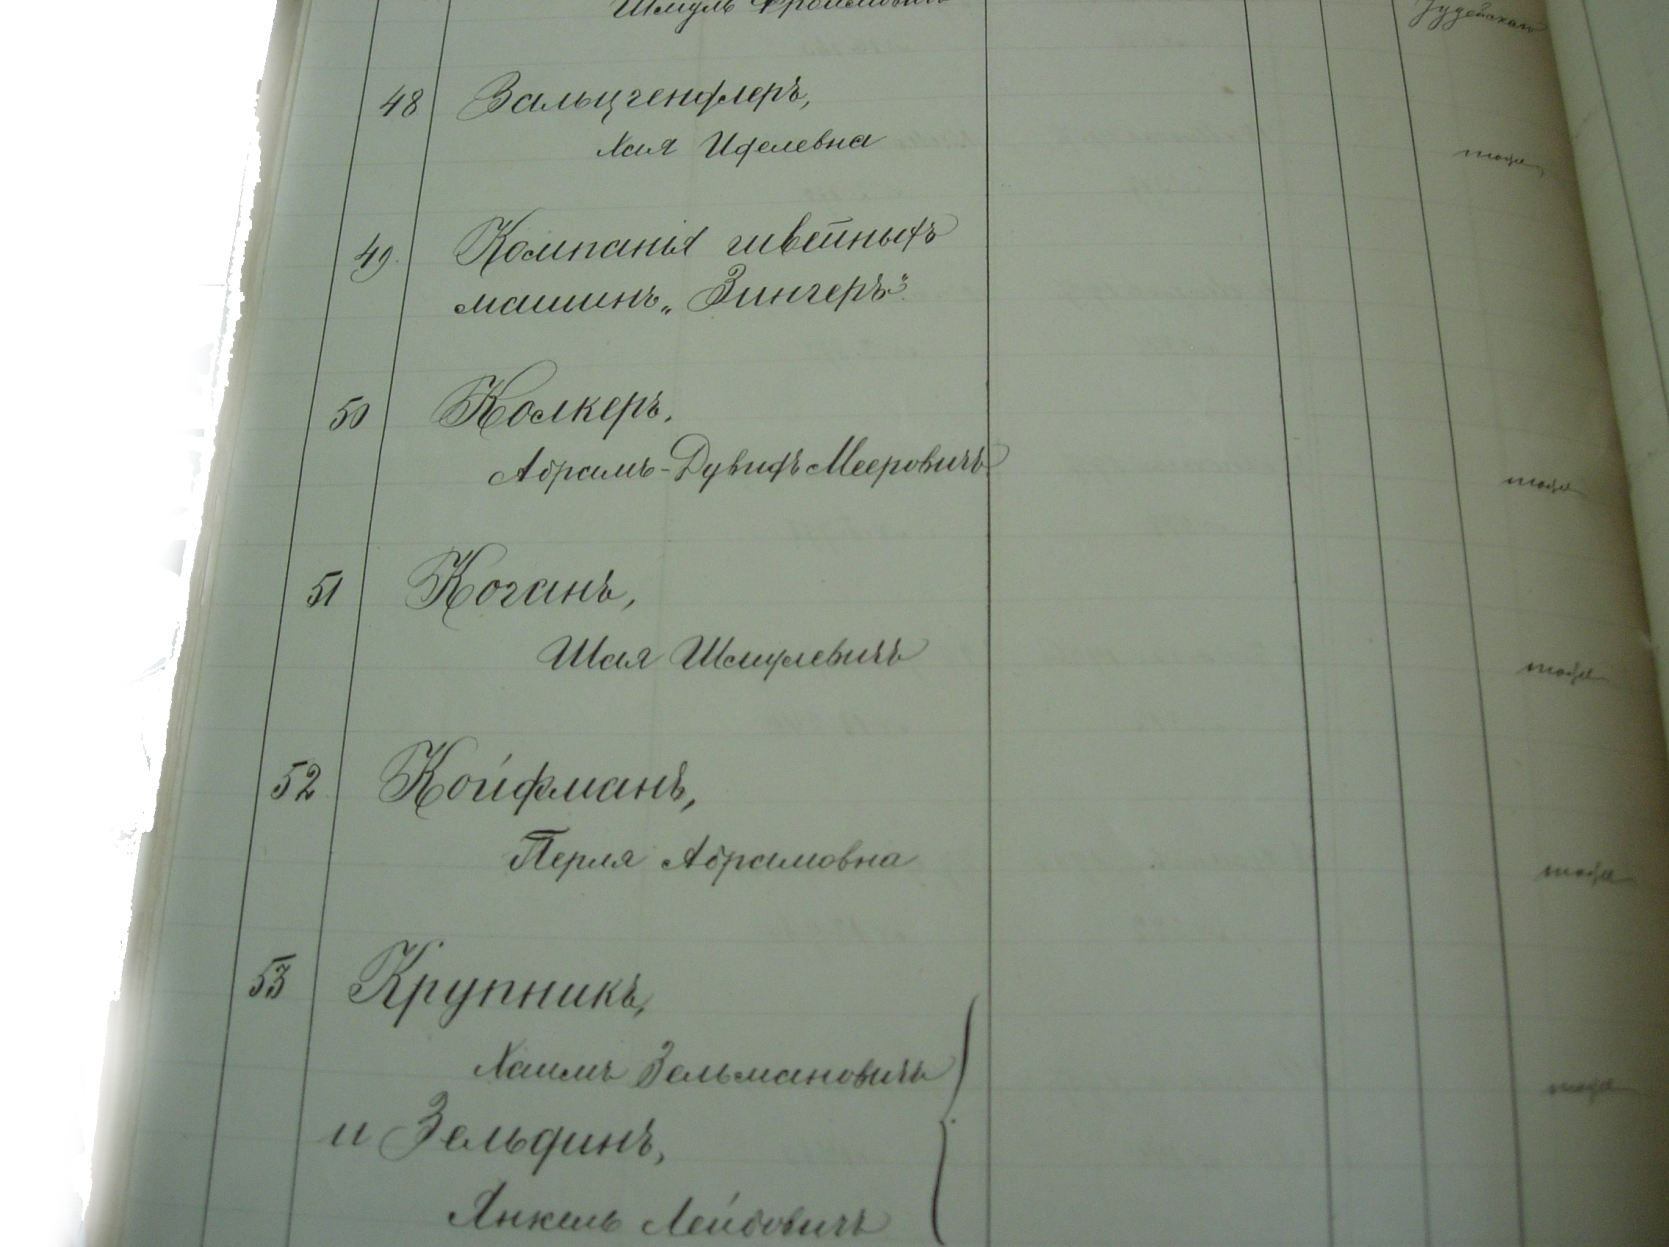 Шмуль Фроимовичъ Іудейскаго
48 Зальцгендлеръ,
Хая Иделевна тоже
49. Компанія швейныхъ
машинъ „Зингеръ“
50 Колкеръ,
Абрамъ-Дувидъ Мееровичъ тоже
51 Коганъ,
Шая Шмулевичъ тоже
52 Койфманъ,
Перля Абрамовна тоже
53 Крупникъ,
Хаимъ Зельмановичъ тоже
и Зельдинъ,
Янкель Лейбовичъ